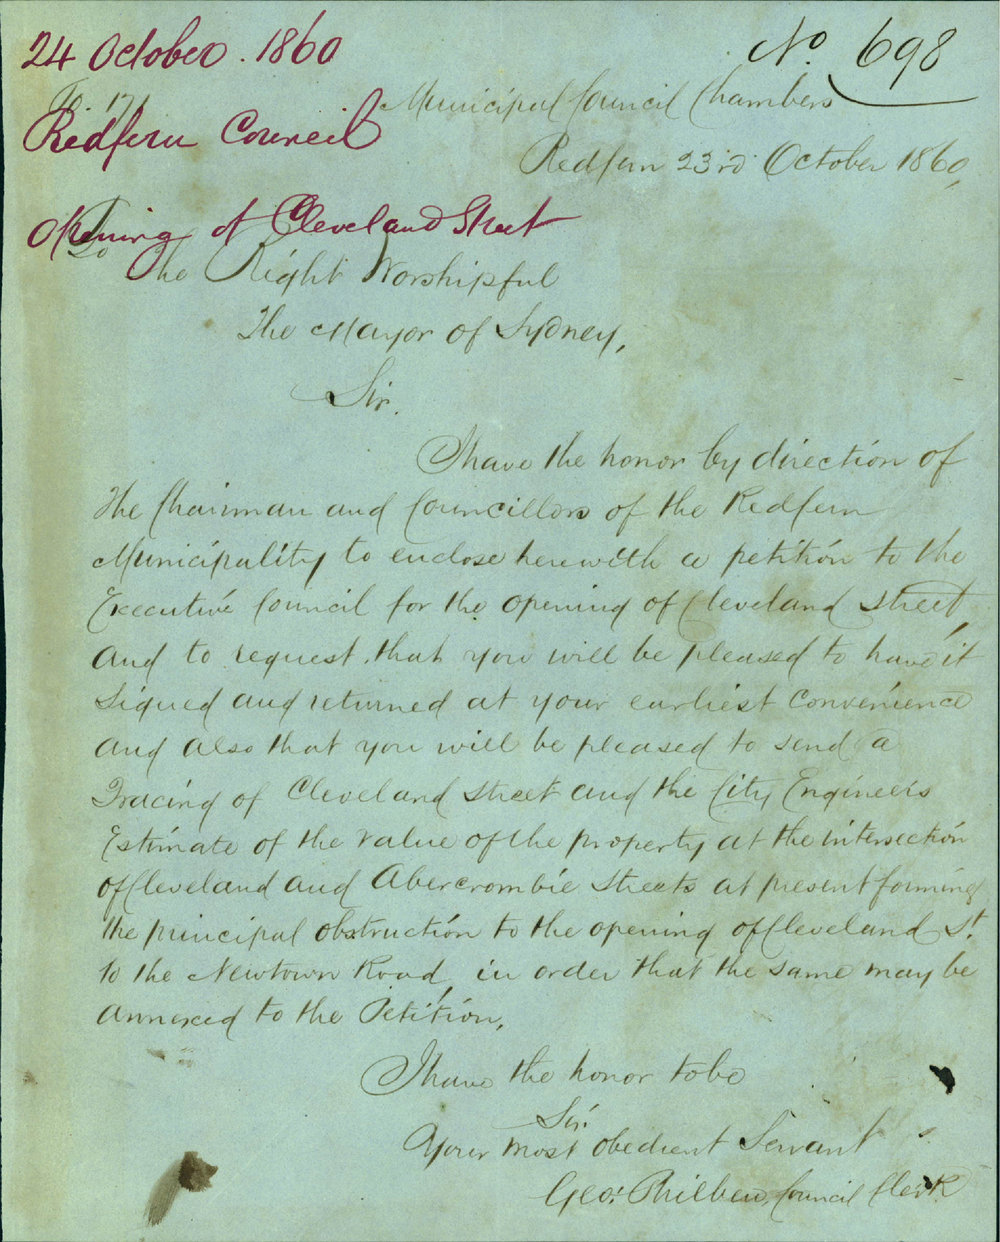 24 October. 1860
No. 698
Municipal Council Chambers
Redfern Council
Redfern 23rd October 1860,
Opening of Cleveland Street
To The Right Worshipful
The Mayor of Sydney,
Sir.
I have the honor by direction of
The Chairman and Councillors of the Redfern
Municipality to enclose herewith a petition to the
Executive Council for the opening of Cleveland street,
and to request that you will be pleased to have it
signed and returned at your earliest convenience
and also that you will be pleased to send a
Tracing of Cleveland street and the City Engineers
Estimate of the value of the property at the intersection
of Cleveland and Abercrombie streets at present forming
the principal obstruction to the opening of Cleveland St.
to the Newtown Road, in order that the same may be
annexed to the Petition.
I have the honor to be
Sir.
Your most obedient Servant
Geo: Council Clerk